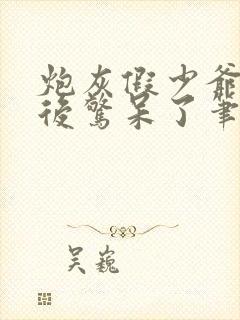 炮灰假少爺
後驚呆了筆
吴巍